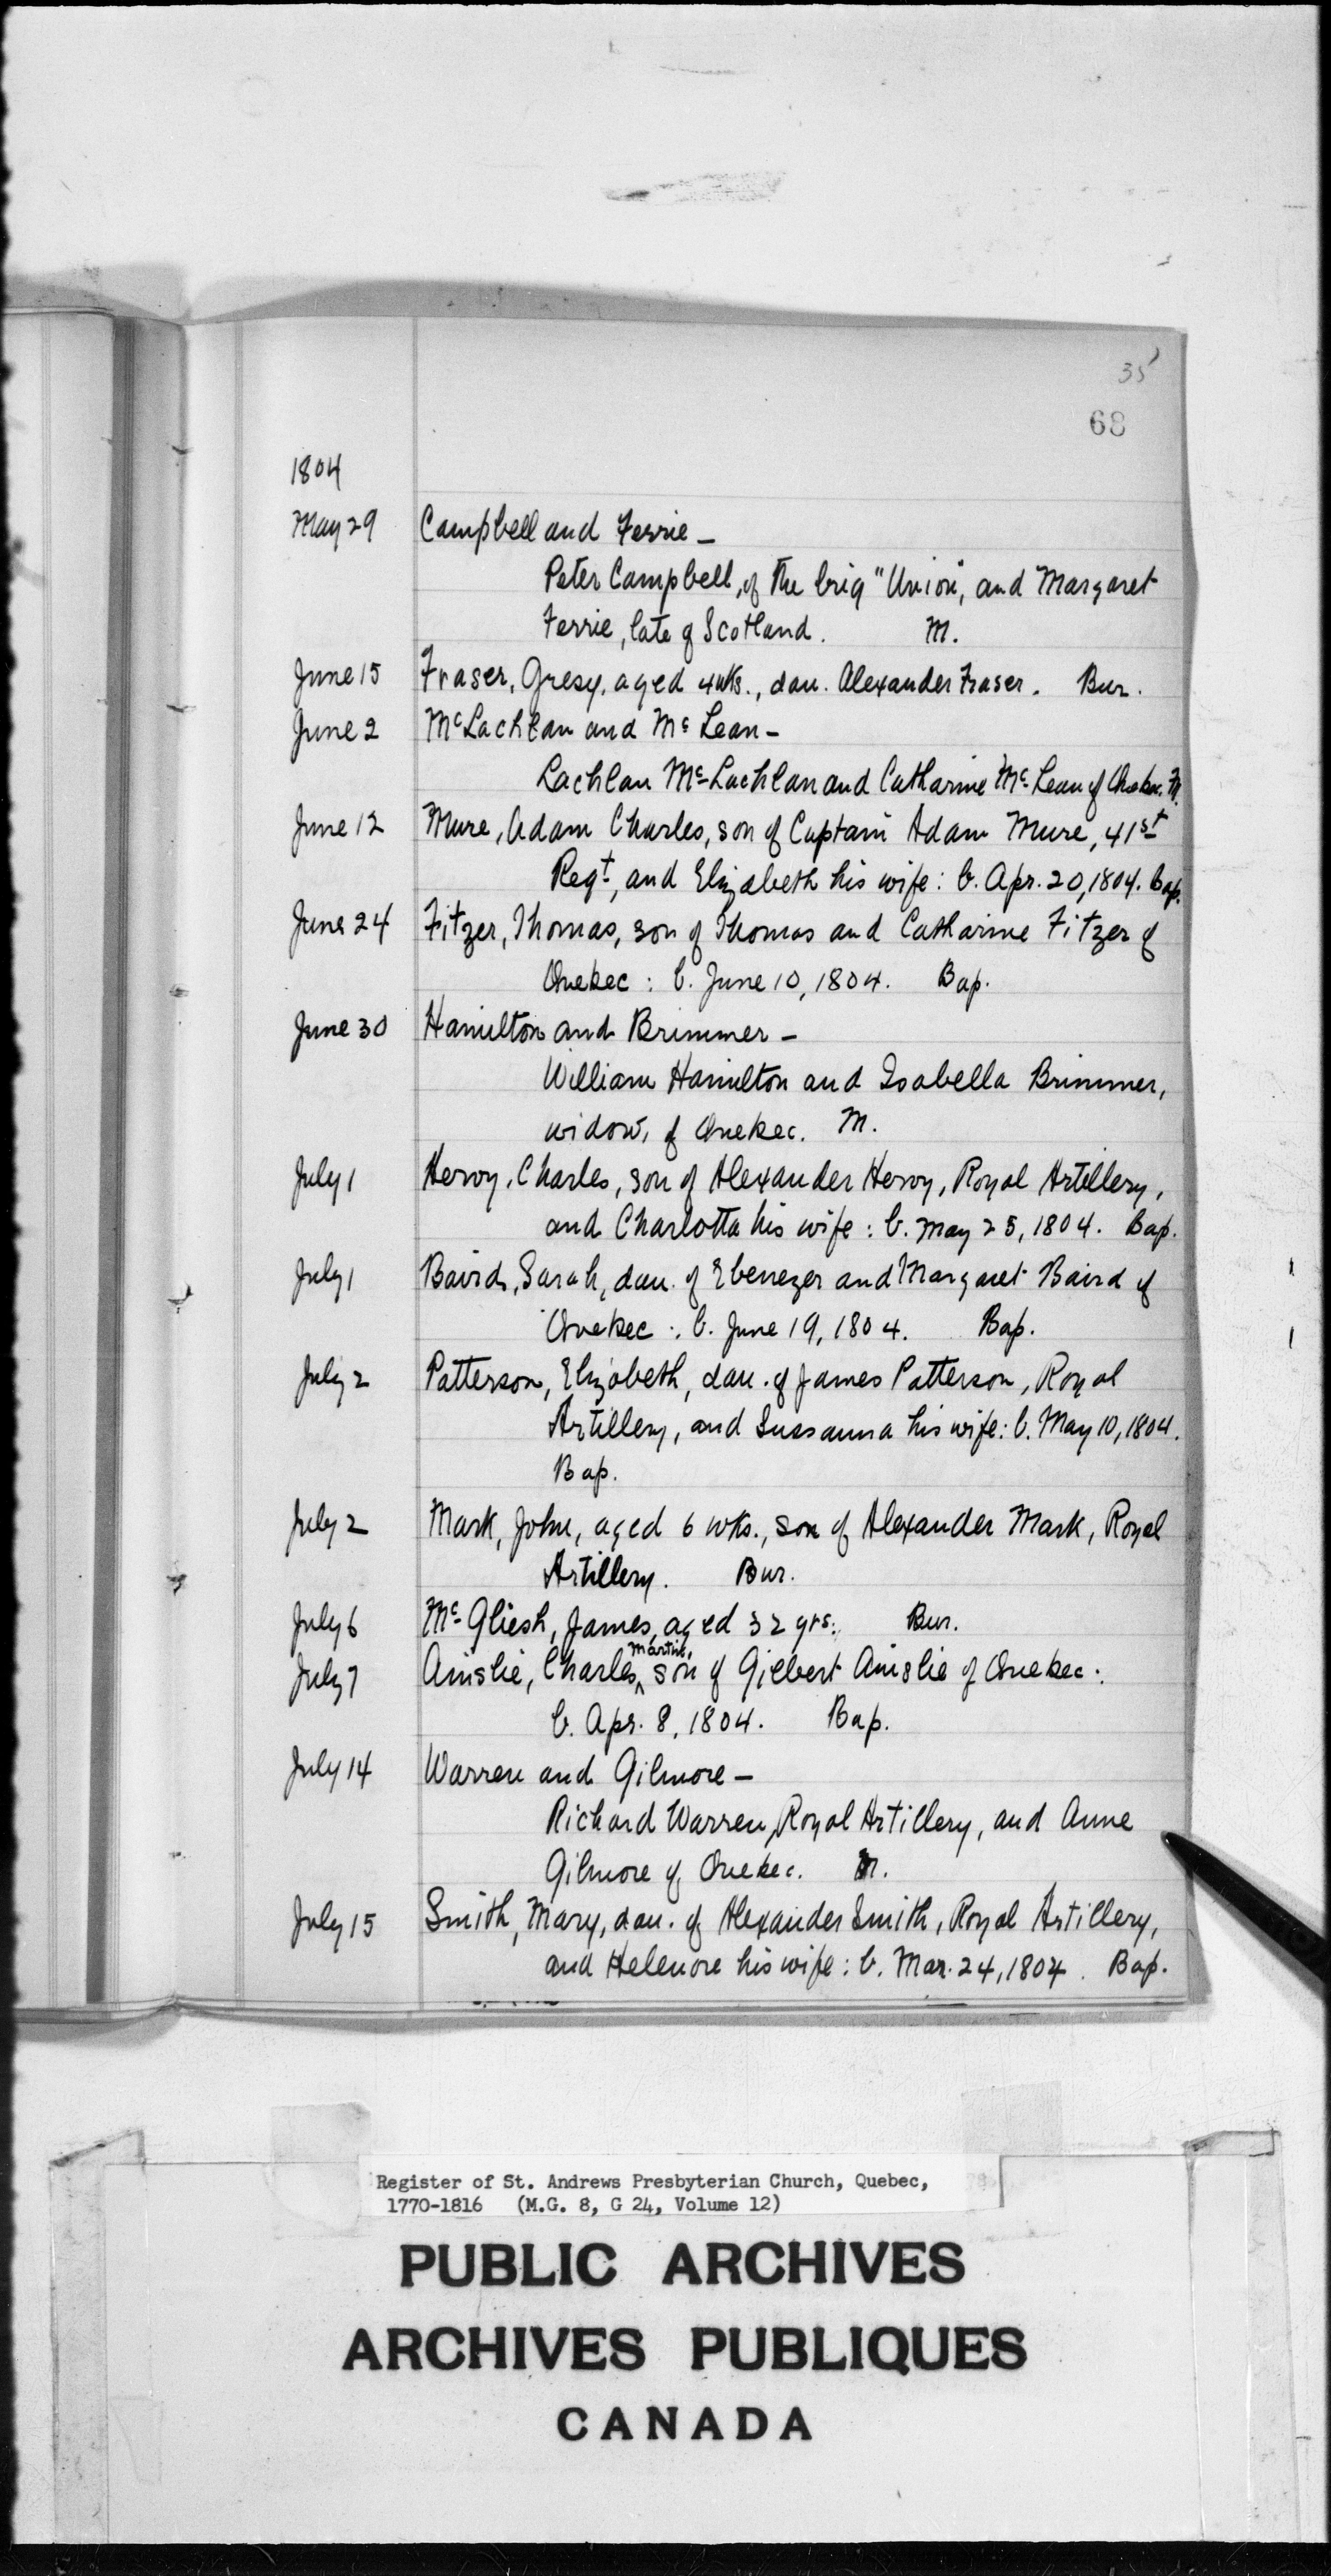 35
68
1804
May 29 Campbell and Ferrie –
Peter Campbell, of the brig "Union", and Margaret
Ferrie, late of Scotland. M.
June 15 Fraser, Gresy, aged 4 wks., dau. Alexander Fraser. Bur.
June 2 McLachlan and McLean –
Lachlan McLachlan and Catharine McLean of Quebec. M.
June 12 Mure, Adam Charles, son of Captain Adam Mure, 41st
Regt, and Elizabeth his wife: b. Apr. 20, 1804. Bap.
June 24 Fitzer, Thomas, son of Thomas and Catharine Fitzer of
Quebec: b. June 10, 1804. Bap.
June 30 Hamilton and Brimmer –
William Hamilton and Isabella Brimmer,
widow, of Quebec. M.
July 1 Hervy, Charles, son of Alexander Hervy, Royal Artillery,
and Charlotta his wife: b. May 25, 1804. Bap.
July 1 Baird, Sarah, dau. of Ebenezer and Margaret Baird of
Quebec: b. June 19, 1804. Bap.
July 2 Patterson, Elizabeth, dau. of James Patterson, Royal
Artillery, and Sussanna his wife: b. May 10, 1804.
Bap.
July 2 Mark, John, aged 6 wks., son of Alexander Mark, Royal
Artillery. Bur.
July 6 McGliesh, James, aged 32 yrs. Bur.
July 7 Ainslie, Charles Martin, son of Gilbert Ainslie of Quebec:
b. Apr. 8, 1804. Bap.
July 14 Warren and Gilmore –
Richard Warren, Royal Artillery, and Anne
Gilmore of Quebec. M.
July 15 Smith, Mary, dau. of Alexander Smith, Royal Artillery,
and Helenore his wife: b. Mar. 24, 1804. Bap.
Register of St. Andrews Presbyterian Church, Quebec,
1770-1816 (M.G. 8, G 24, Volume 12)
PUBLIC ARCHIVES
ARCHIVES PUBLIQUES
CANADA